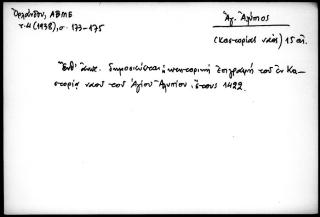 Ὀρλάνδου, ΑΒΜΕ
τ. Δ (1938), σ. 173-175
Ἅγ. Ἀλύπιος
(Καστοριᾶς ναός) 15 αἰ.
Ἔνθ' ἀνωτ. δημοσιεύεται ἡ κτιτορική ἐπιγραφή τοῦ ἐν Κα-
στορίᾳ ναοῦ τοῦ Ἁγίου Ἀλυπίου, ἔτους 1422.